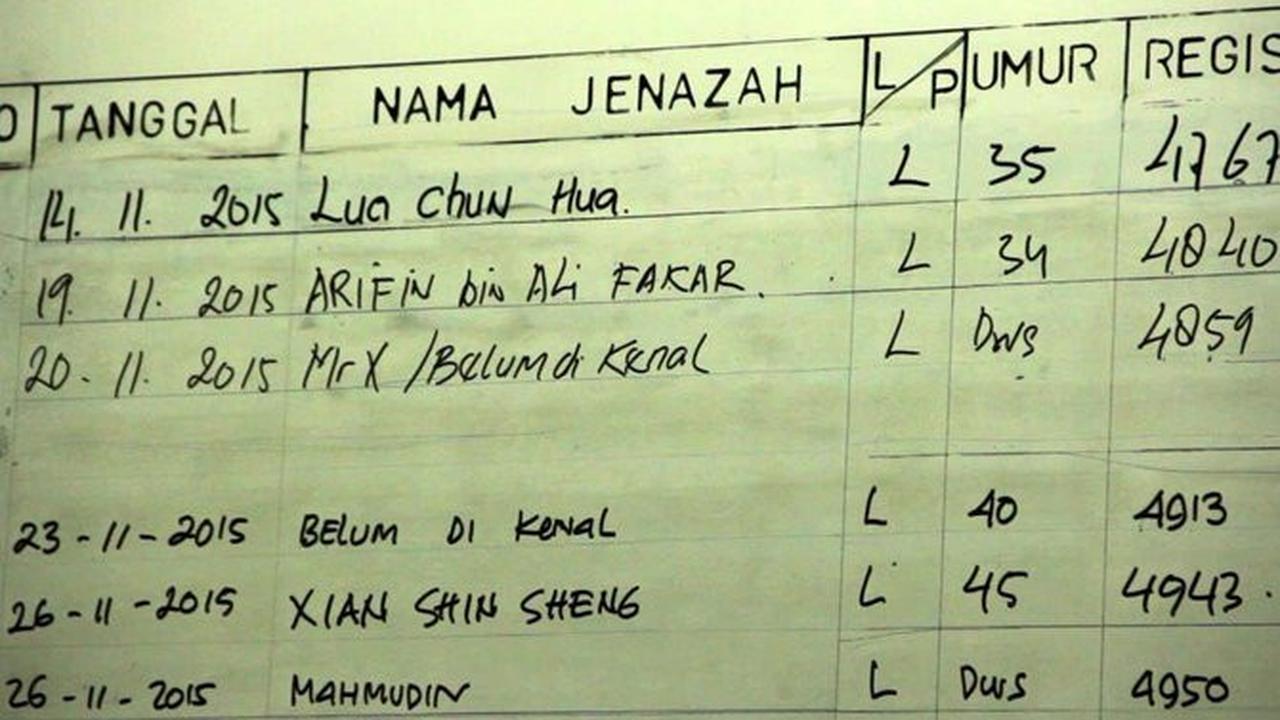 O TANGGAL NAMA JENAZAH L/P UMUR REGIS
14. 11. 2015 Lua Chun Hua. L 35 4767
19. 11. 2015 ARIFIN bin Ali FAKAR. L 34 4840
20. 11. 2015 Mr X / Belum di Kenal L Dws 4859
23-11-2015 BELUM DI KenaL L 40 4913
26-11-2015 XIAN SHIN SHENG L 45 4943.
26-11-2015 MAHMUDIN L Dws 4950